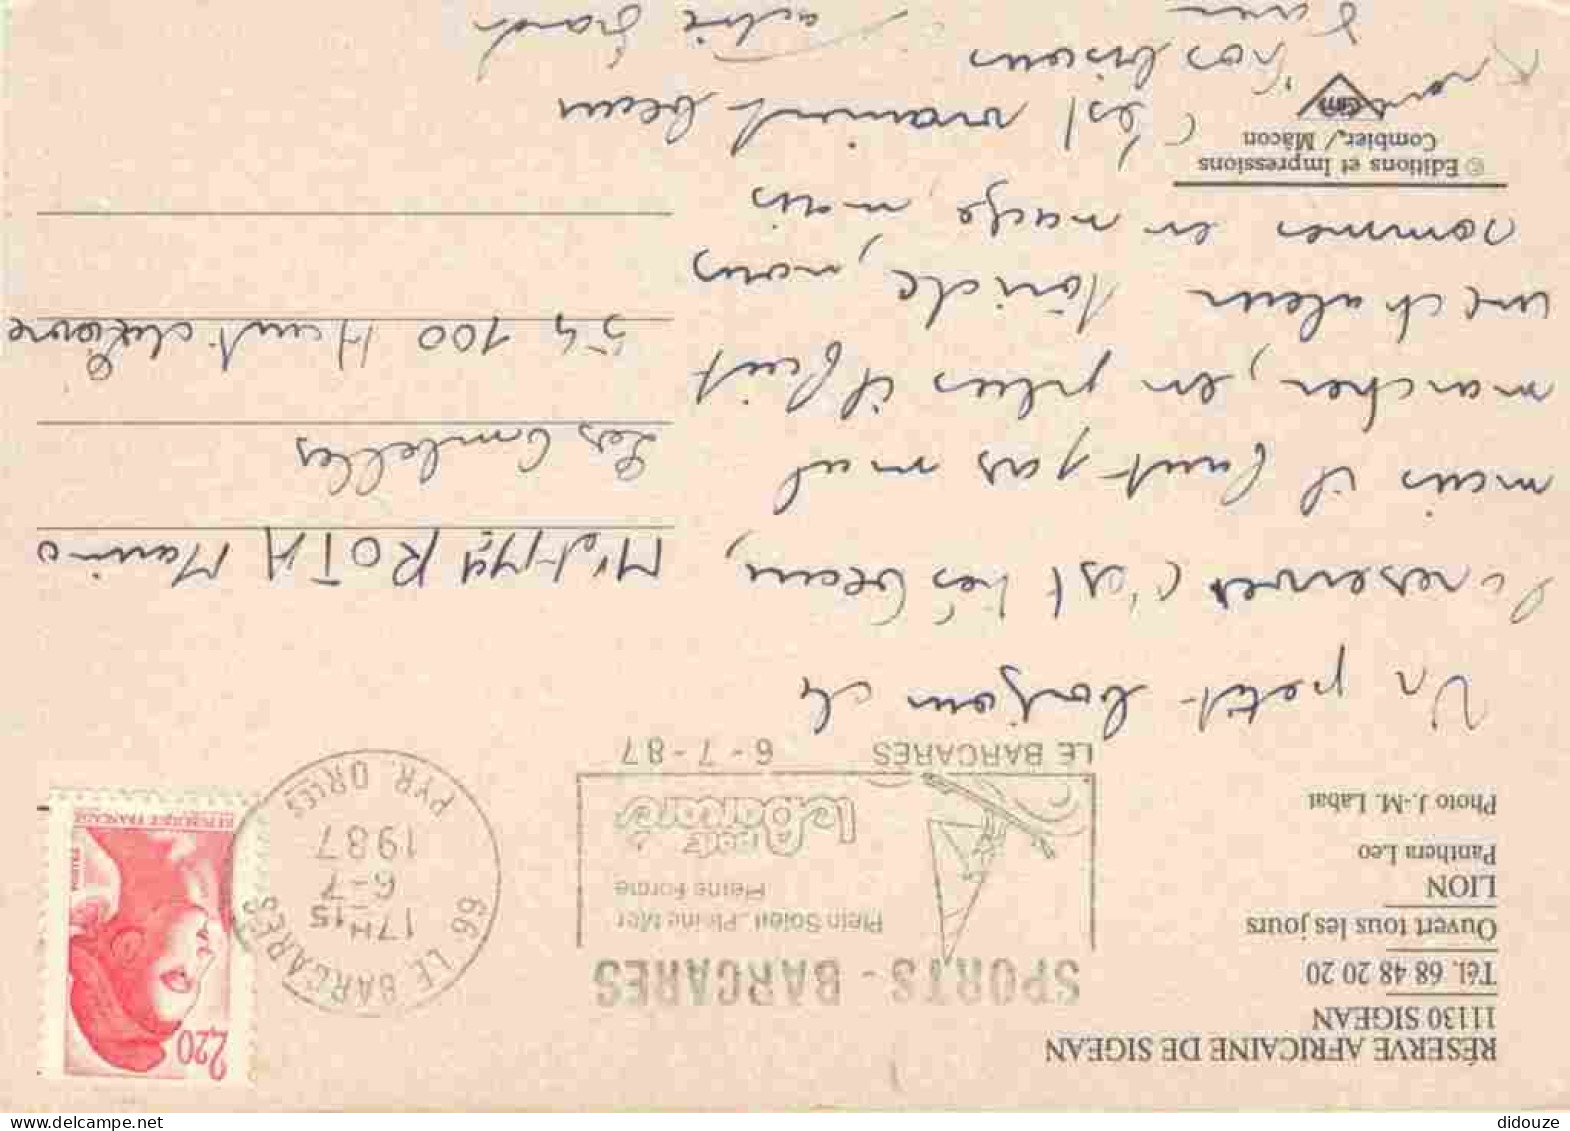 RÉSERVE AFRICAINE DE SIGEAN
11130 SIGEAN
Tél. 68 48 20 20
Ouvert tous les jours
LION
Panthera Leo
Photo J.-M. Labat
SPORTS - BARCARES
Plein Soleil . Pleine Mer
Pleine Forme
Port
Le Barcarès
LE BARCARES 6-7-87
66 LE BARCARES
17H15
6-7
1987
PYR. ORLES
2,20
REPUBLIQUE FRANÇAISE
Un petit bonjour de
la reserve c'est très beau,
mais il faut pas mal
marcher, en plus il fait
une chaleur torride, nous
sommes en nage, mais
c'est vraiment beau
Nos bisous
ROTA Marino
Les Ombelles
54 100 Haut
© Editions et Impressions
Combier / Mâcon
CIM
didouze